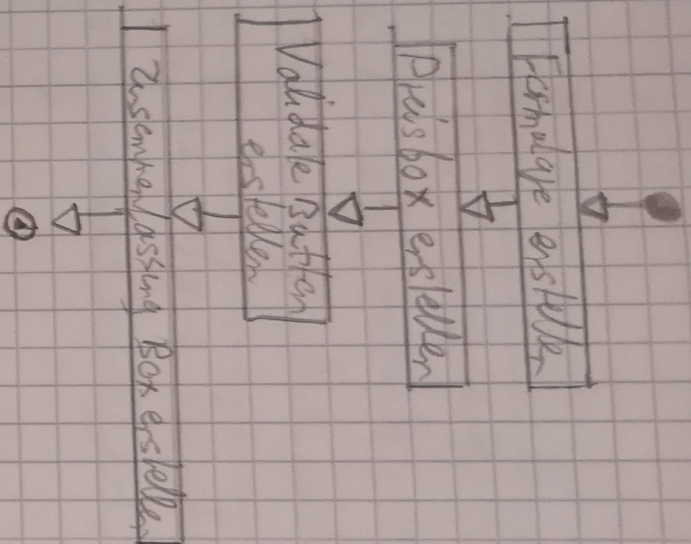 Formulare erstellen
Preisbox erstellen
Validate Button
erstellen
Zusammenfassung Box erstellen